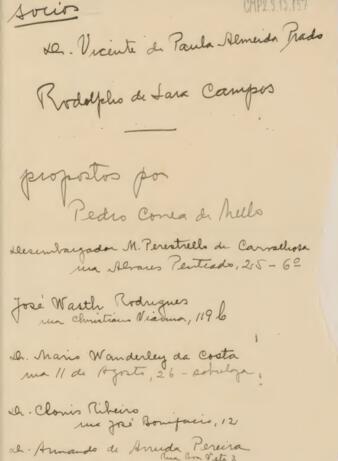 socios
CMP2.9.13.157
Dr. Vicente de Paula Almeida Prado
Rodolpho de Lara Campos
propostos por
Pedro Correa de Mello
Desembargador M. Perestrello de Carvalhosa
rua Alvares Penteado, 25-6º
José Wasth Rodrigues
rua Christiano Vianna, 119 b
Dr. Mario Wanderley da Costa
rua 11 de Agosto, 26 - sobreloja
Dr. Clovis Ribeiro
rua José Bonifacio, 12
Dr. Armando de Arruda Pereira
rua Boa Vista 3